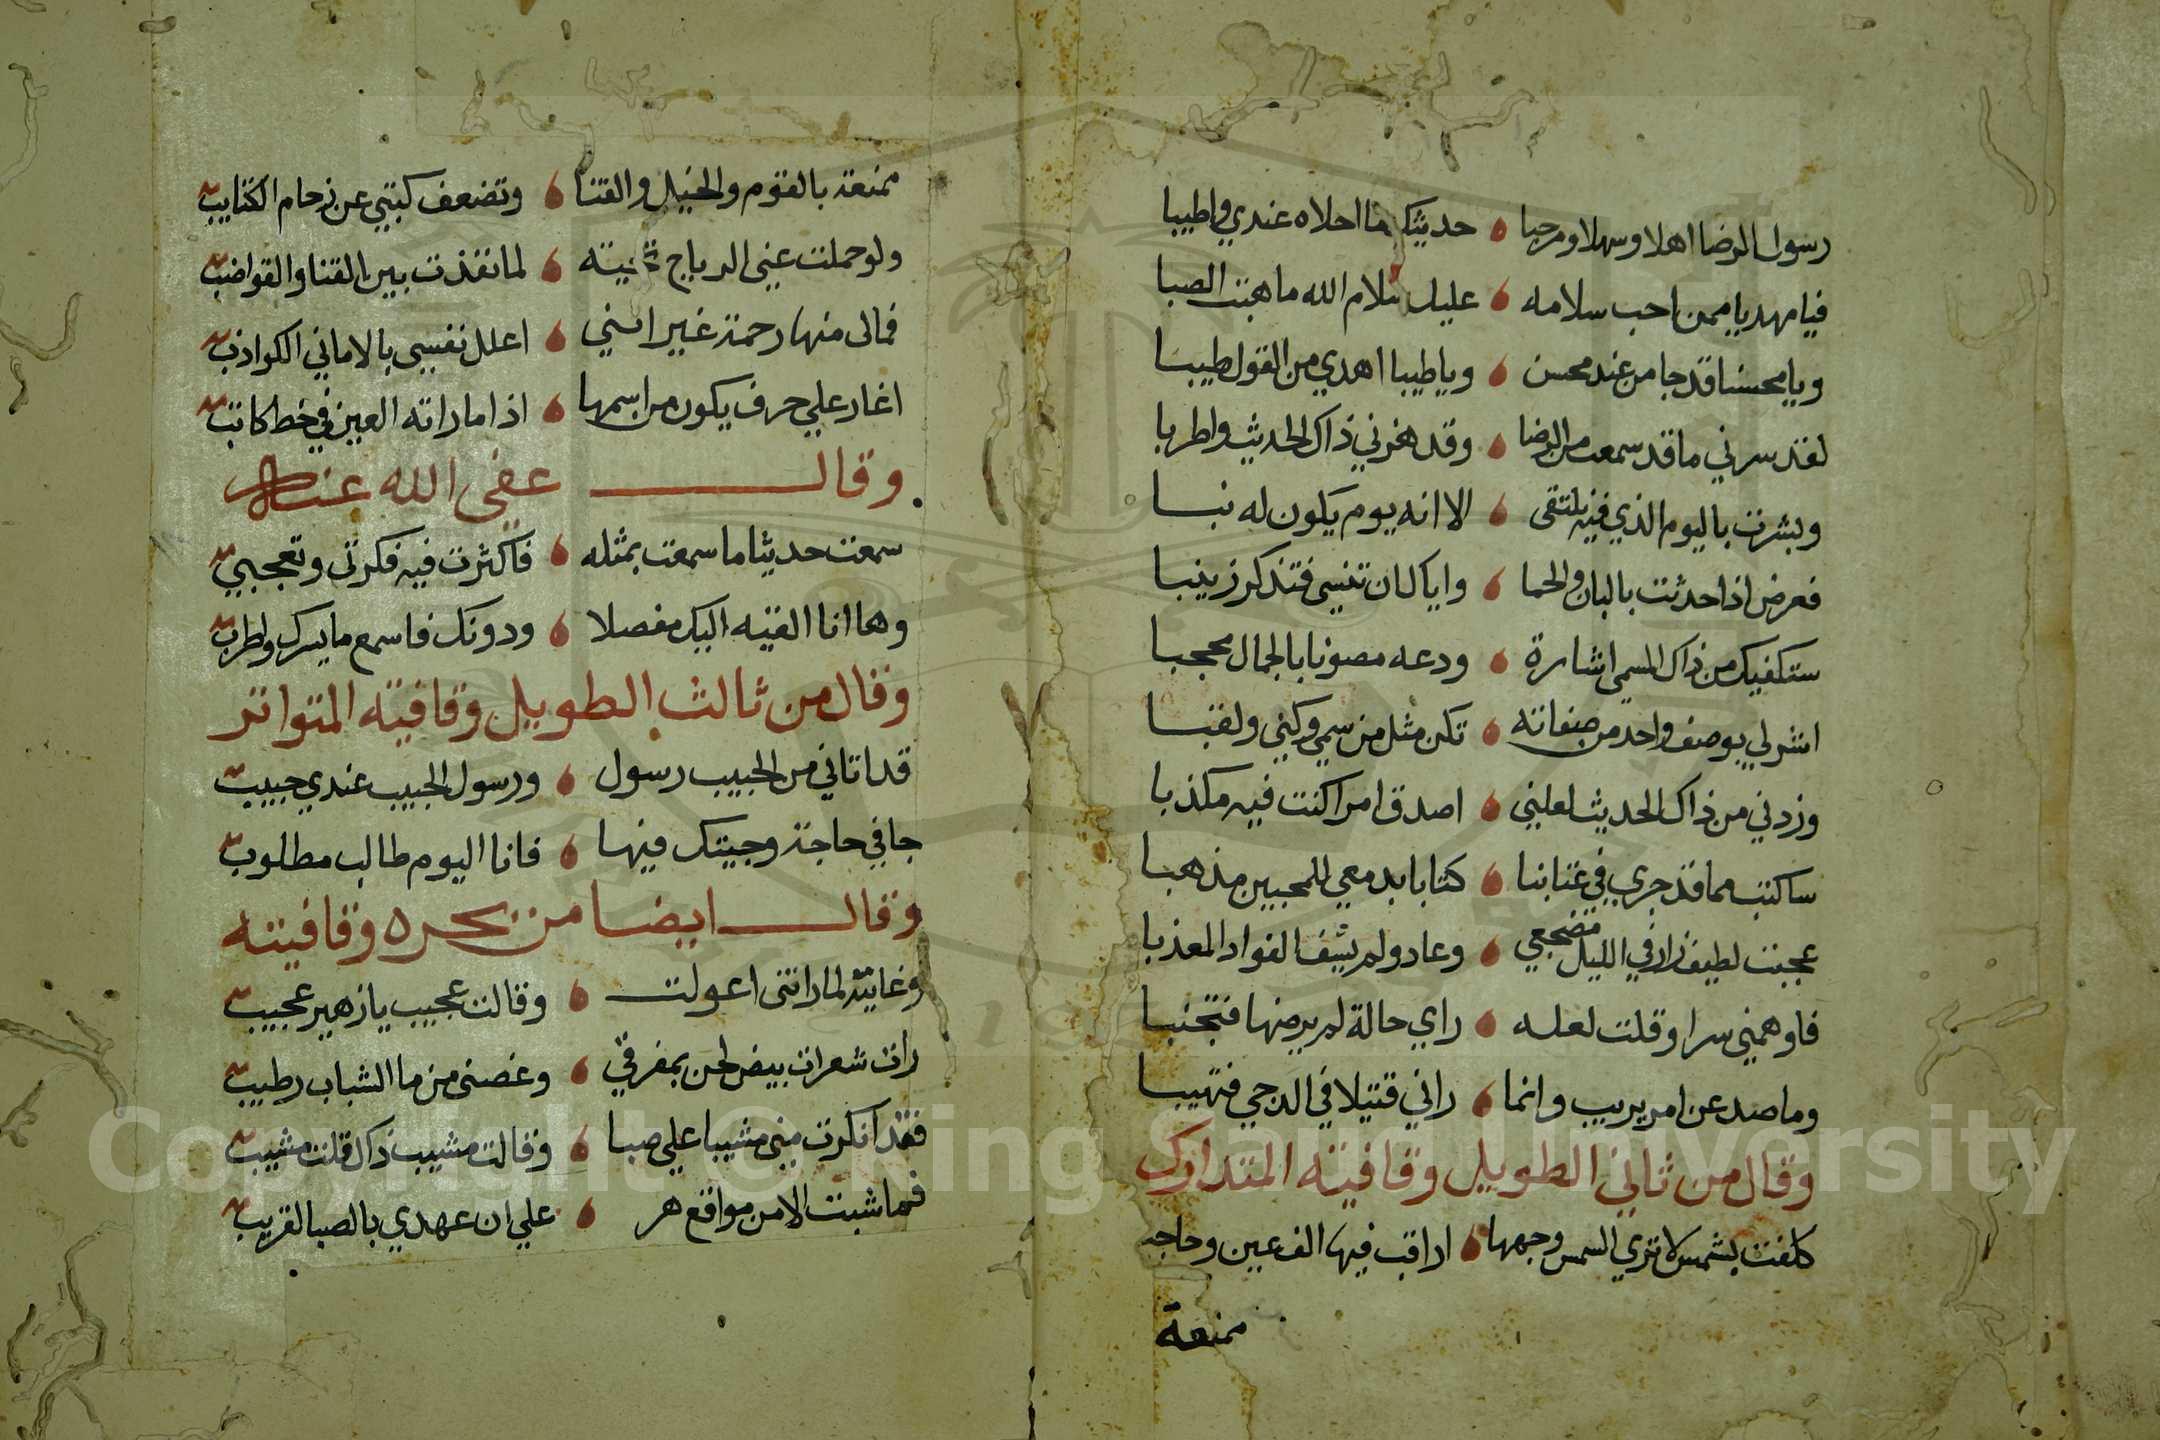 رسول الرضا اهلا وسهلا ومرحبا حديثك ما احلاه عندي واطيبا
فيا مهديا ممن احب سلامه عليك سلام الله ما هبت الصبا
ويا محسنا قد جا من عند محسن ويا طيبا اهدي من القول طيبا
لقد سرني ما قد سمعت من الرضا وقد هزني ذاك الحديث واطربا
وبشرت باليوم الذي فيه نلتقى الا انه يوم يكون له نبا
فعرض اذا حدثت بالبان والحما واياك ان تنسى فتذكر زينبا
ستكفيك من ذاك المسمى اشارة ودعه مصونا بالجمال محجبا
اشر لي بوصف واحد من صفاته تكن مثل من سمي وكني ولقبا
وزدني من ذاك الحديث لعلني اصدق امرا كنت فيه مكذبا
ساكتب مما قد جري في عتابنا كتابا بدمعي للمحبين مذهبا
عجبت لطيف زار في الليل مضجعي وعاد ولم يشف الفواد المعذبا
فاوهمني سرا وقلت لعله راي حالة لم يرضها فتجنبا
وما صد عن امر يريب وانما راني قتيلا في الدجي فتهيبا
وقال من ثاني الطويل وقافيته المتدارك
كلفت بشمس لا تري الشمس وجهها اراقب فيها الف عين وحاجب
ممنعة
ممنعة بالقوم والخيل والقنا وتضعف كتبي عن زحام الكتايب
ولو حملت عني الرياح تحيته لما نفذت بين القنا والقواضب
فمالى منها رحمة غير انني اعلل نفسي بالاماني الكواذب
اغار علي حرف يكون من اسمها اذا ما راته العين في خط كاتب
وقال عفى الله عنه
سمعت حديثا ما سمعت بمثله فاكثرت فيه فكرتى وتعجبي
وها انا القيه اليك مفصلا ودونك فاسمع ما يسرك واطرب
وقال من ثالث الطويل وقافيته المتواتر
قد اتاني من الحبيب رسول ورسول الحبيب عندي حبيب
جا في حاجة وجيتك فيها فانا اليوم طالب مطلوب
وقال ايضا من بحره وقافيته
وغانية لما راتنى اعولت وقالت عجيب يا زهير عجيب
رات شعرات بيض لحن بمفرقي وغصنى من ما الشباب رطيب
فقد انكرت منى مشيبا علي صبا وقالت مشيب ذاك قلت مشيب
فما شبت الا من مواقع هر علي ان عهدي بالصبا لقريب
Copyright © King Saud University